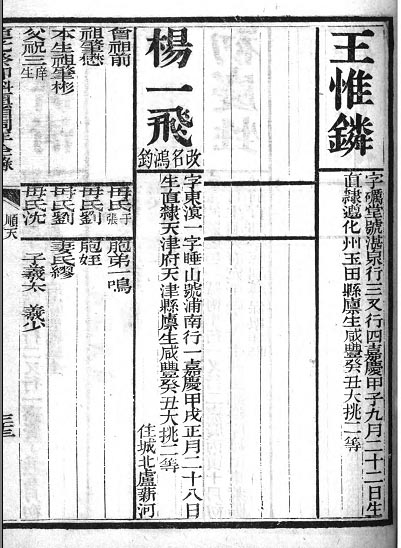 王惟鏻
字礪堂號湛泉行三又行四嘉慶甲子九月二十二日生
直隸遵化州玉田縣廩生咸豐癸丑大挑二等
楊一飛
改名鴻鈞
字東滇一字睡山號浦南行一嘉慶甲戌正月二十八日
生直隸天津府天津縣廩生咸豐癸丑大挑二等
住城北盧新河
曾祖前
祖肇懋
本生祖肇彬
父祝三庠生
母氏于張
母氏劉
母氏劉
母氏沈
胞弟一鳴
胞姪
妻氏繆
子義太 義少
順天